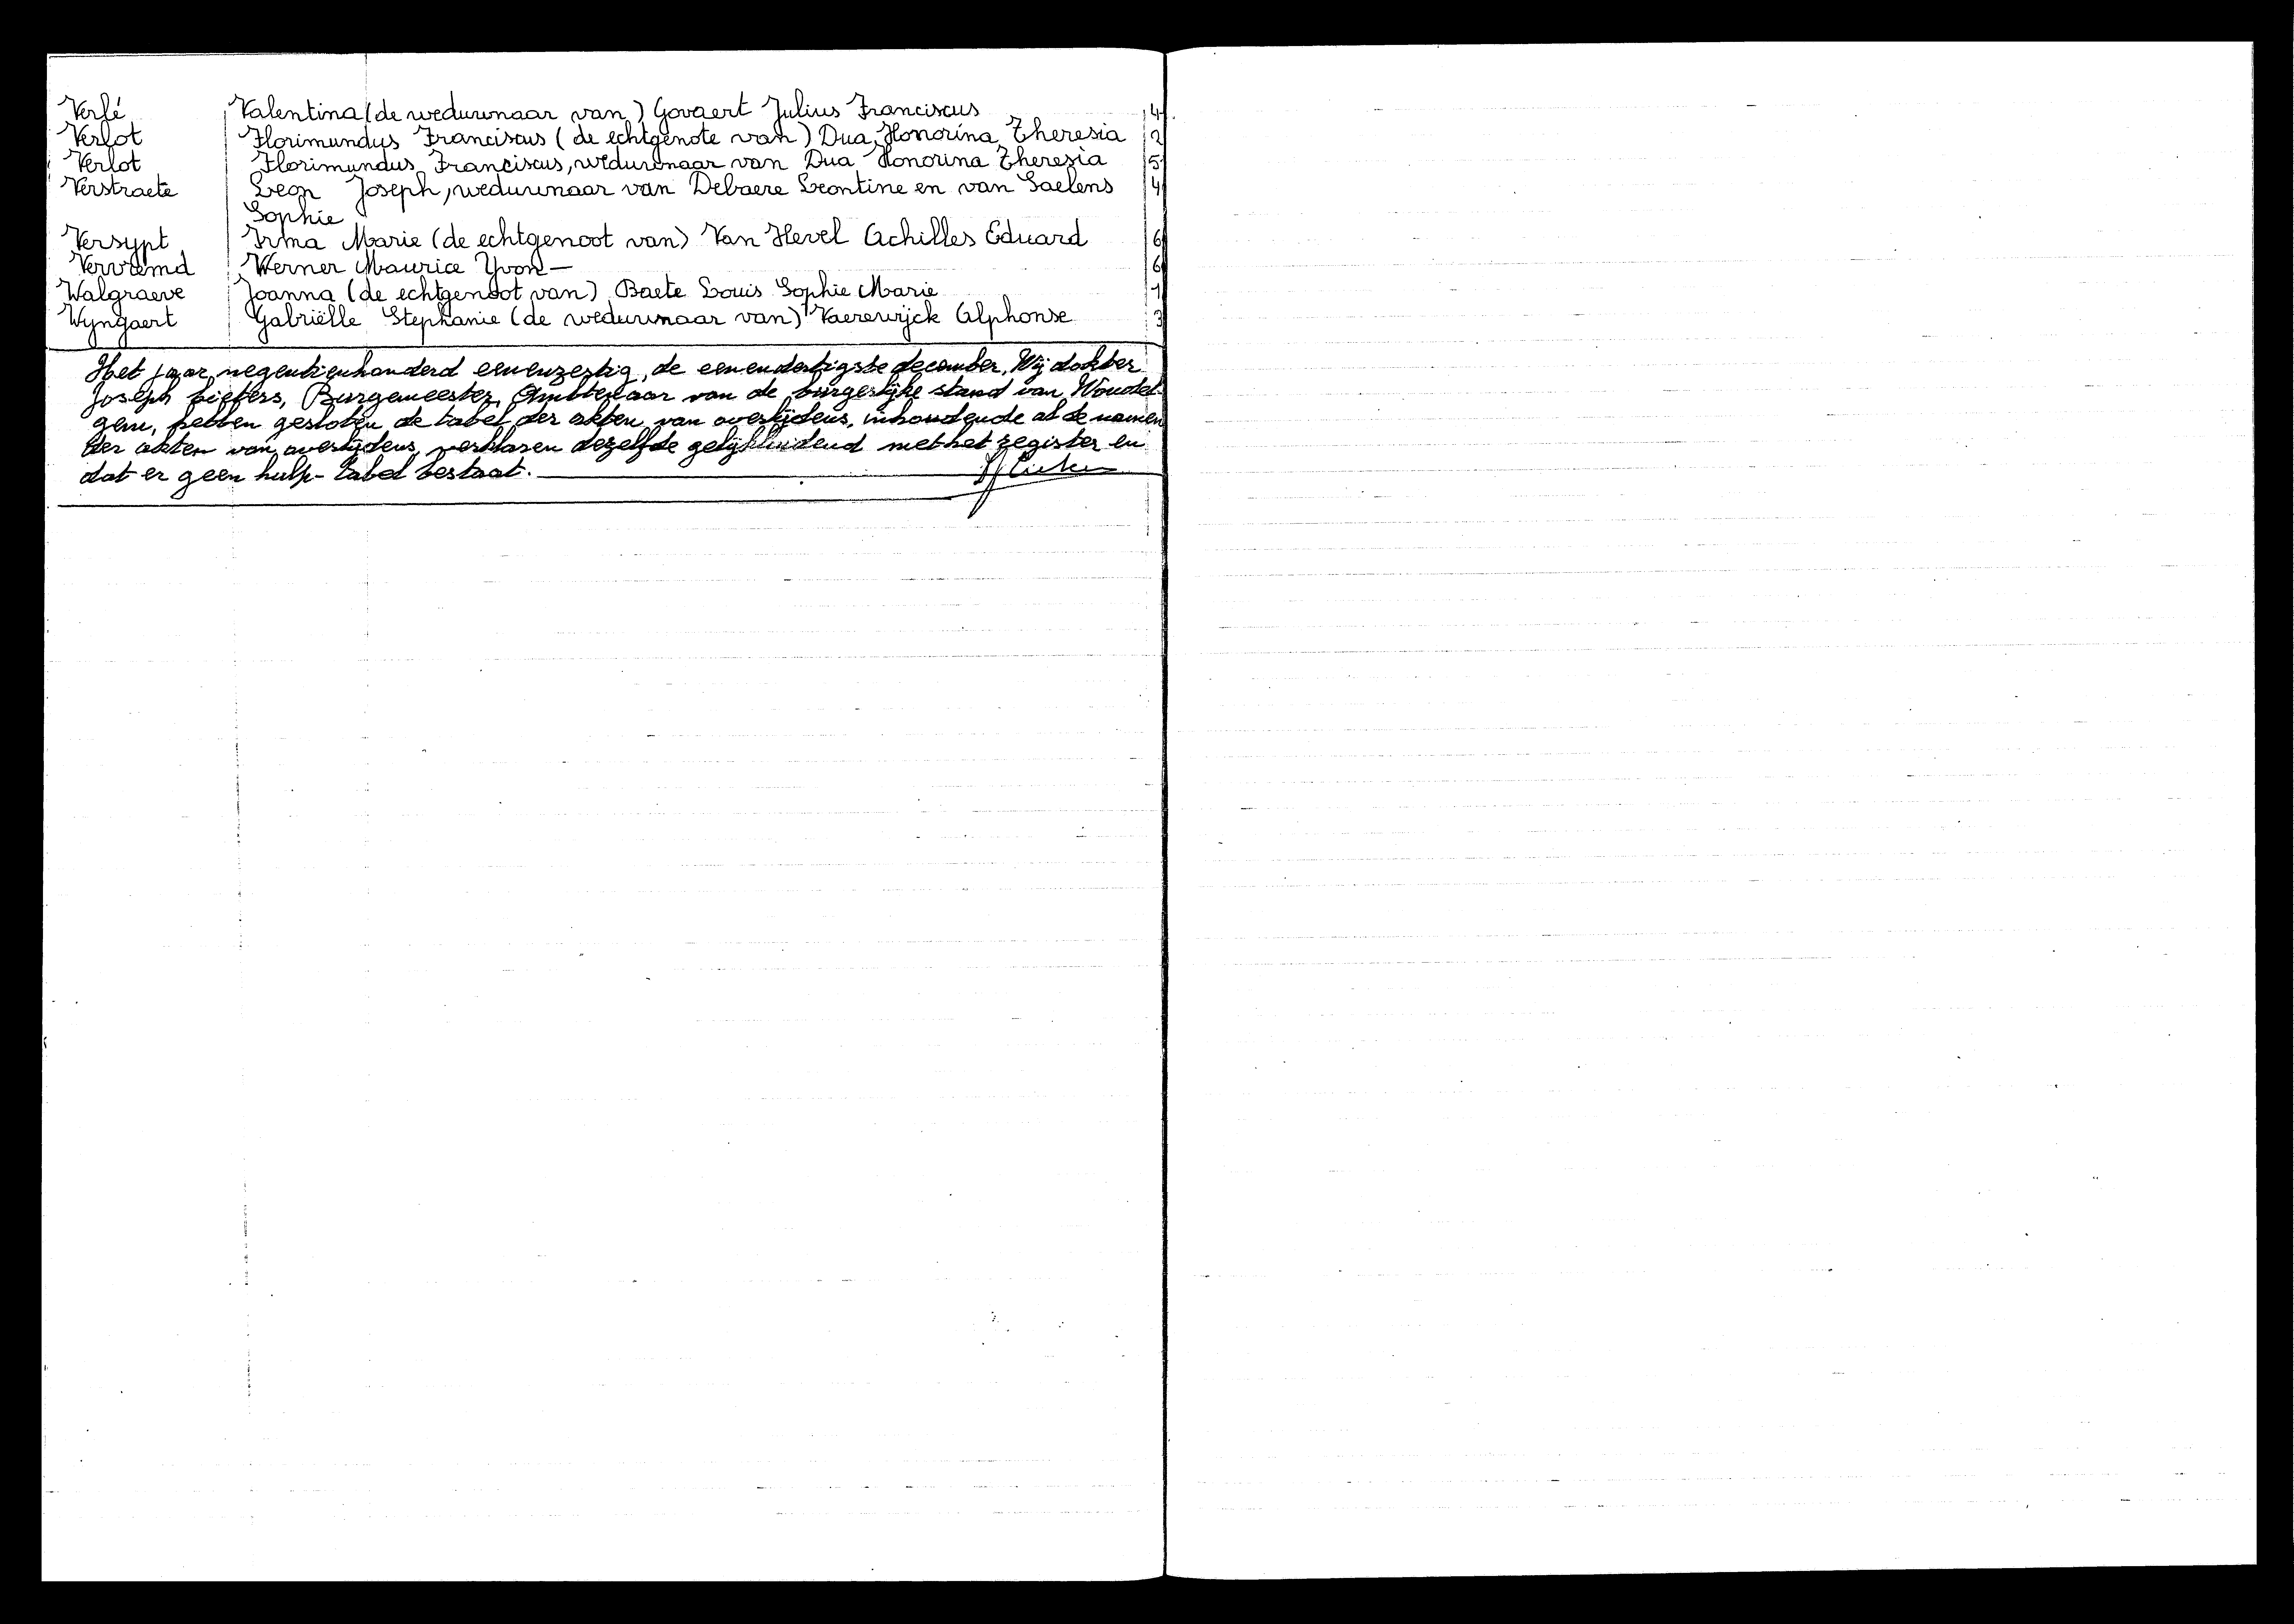 Verlé Valentina (de weduwnaar van) Govaert Julius Franciscus 4
Verlot Florimundus Franciscus (de echtgenote van) Dua Honorina Theresia 2
Verlot Florimundus Franciscus, weduwnaar van Dua Honorina Theresia 5
Verstraete Leon Joseph, weduwnaar van Debaere Leontine en van Saelens 4
Sophie
Versypt Irma Marie (de echtgenoot van) Van Hevel Achilles Eduard 6
Vervremd Werner Maurice Yvon — 6
Walgraeve Joanna (de echtgenoot van) Baete Louis Sophie Marie 1
Wyngaert Gabriëlle Stephanie (de weduwnaar van) Vaerewijck Alphonse 3
Het jaar negentienhonderd eenenzestig, de eenendertigste december. Wij dokter
Joseph Lieters, Burgemeester, Ambtenaar van de burgerlijke stand van Woudel-
gem, hebben gesloten de tabel der akten van overlijdens, inhoudende al de namen
der akten van overlijdens, verklaren dezelfde gelijkluidend met het register en
dat er geen hulp-tabel bestaat.